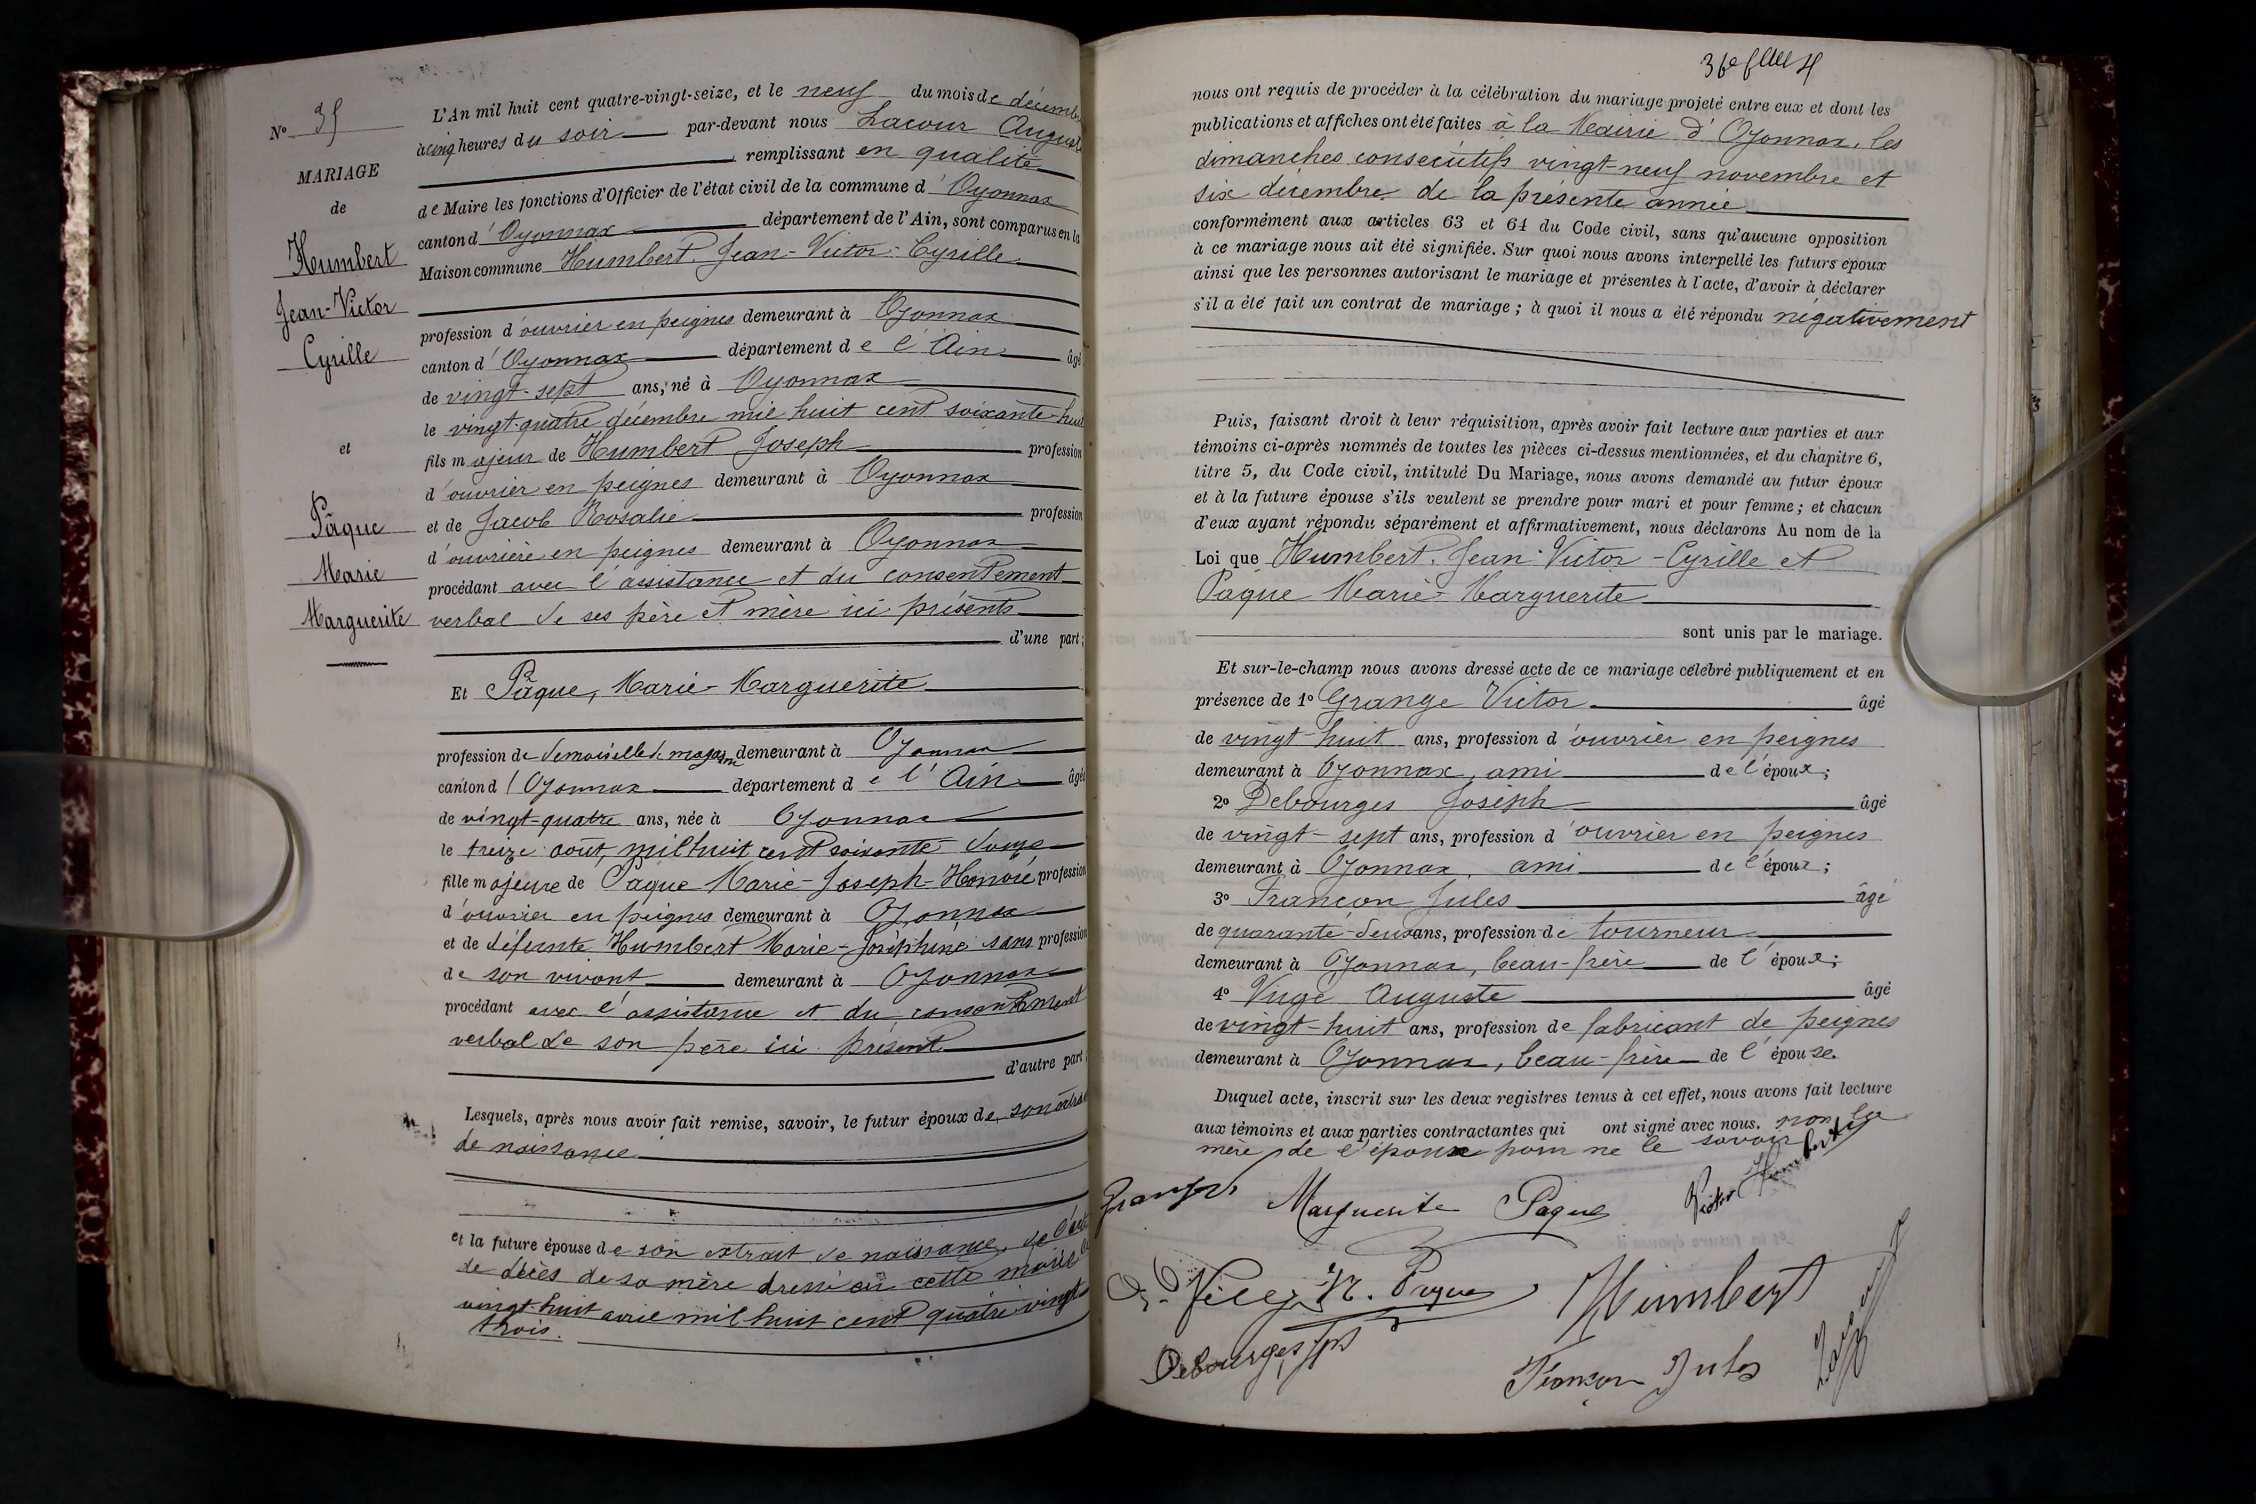 N° 35
MARIAGE
de
Humbert
Jean-Victor
Cyrille
et
Pâque
Marie
Marguerite
L'An mil huit cent quatre-vingt-seize, et le neuf du mois de décembre
à cinq heures du soir par-devant nous Lacour Auguste
remplissant en qualité
de Maire les fonctions d'Officier de l'état civil de la commune d'Oyonnax
canton d'Oyonnax département de l'Ain, sont comparus en la
Maison commune Humbert Jean-Victor-Cyrille
profession d'ouvrier en peignes demeurant à Oyonnax
canton d'Oyonnax département de l'Ain âgé
de vingt-sept ans, né à Oyonnax
le vingt-quatre décembre mil huit cent soixante-huit
fils majeur de Humbert Joseph profession
d'ouvrier en peignes demeurant à Oyonnax
et de Jacob Rosalie profession
d'ouvrière en peignes demeurant à Oyonnax
procédant avec l'assistance et du consentement
verbal de ses père et mère ici présents
d'une part;
Et Pâque, Marie-Marguerite
profession de demoiselle de magasin demeurant à Oyonnax
canton d'Oyonnax département de l'Ain âgée
de vingt-quatre ans, née à Oyonnax
le treize août, mil huit cent soixante douze
fille majeure de Pâque Marie-Joseph-Honoré profession
d'ouvrier en peignes demeurant à Oyonnax
et de défunte Humbert Marie-Joséphine sans profession
de son vivant demeurant à Oyonnax
procédant avec l'assistance et du consentement
verbal de son père ici présent
d'autre part
Lesquels, après nous avoir fait remise, savoir, le futur époux de son extrait
de naissance
et la future épouse de son extrait de naissance, de l'acte
de décès de sa mère dressé en cette mairie le
vingt-huit avril mil huit cent quatre-vingt
trois.
36e f
nous ont requis de procéder à la célébration du mariage projeté entre eux et dont les
publications et affiches ont été faites à la Mairie d'Oyonnax, les
dimanches consécutifs vingt-neuf novembre et
six décembre de la présente année
conformément aux articles 63 et 64 du Code civil, sans qu'aucune opposition
à ce mariage nous ait été signifiée. Sur quoi nous avons interpellé les futurs époux
ainsi que les personnes autorisant le mariage et présentes à l'acte, d'avoir à déclarer
s'il a été fait un contrat de mariage; à quoi il nous a été répondu négativement
Puis, faisant droit à leur réquisition, après avoir fait lecture aux parties et aux
témoins ci-après nommés de toutes les pièces ci-dessus mentionnées, et du chapitre 6,
titre 5, du Code civil, intitulé Du Mariage, nous avons demandé au futur époux
et à la future épouse s'ils veulent se prendre pour mari et pour femme; et chacun
d'eux ayant répondu séparément et affirmativement, nous déclarons Au nom de la
Loi que Humbert Jean-Victor-Cyrille et
Paque Marie-Marguerite
sont unis par le mariage.
Et sur-le-champ nous avons dressé acte de ce mariage célébré publiquement et en
présence de 1° Grange Victor âgé
de vingt-huit ans, profession d'ouvrier en peignes
demeurant à Oyonnax, ami de l'époux;
2° Debourges Joseph âgé
de vingt-sept ans, profession d'ouvrier en peignes
demeurant à Oyonnax, ami de l'époux;
3° Françon Jules âgé
de quarante-deux ans, profession de tourneur
demeurant à Oyonnax, beau-frère de l'époux;
4° Auguste âgé
de vingt-huit ans, profession de fabricant de peignes
demeurant à Oyonnax, beau-frère de l'épouse.
Duquel acte, inscrit sur les deux registres tenus à cet effet, nous avons fait lecture
aux témoins et aux parties contractantes qui ont signé avec nous. non la
mère de l'époux pour ne le savoir
Marguerite Paque Victor Humbert
H. Paque Humbert
Debourges Jph Françon Jules